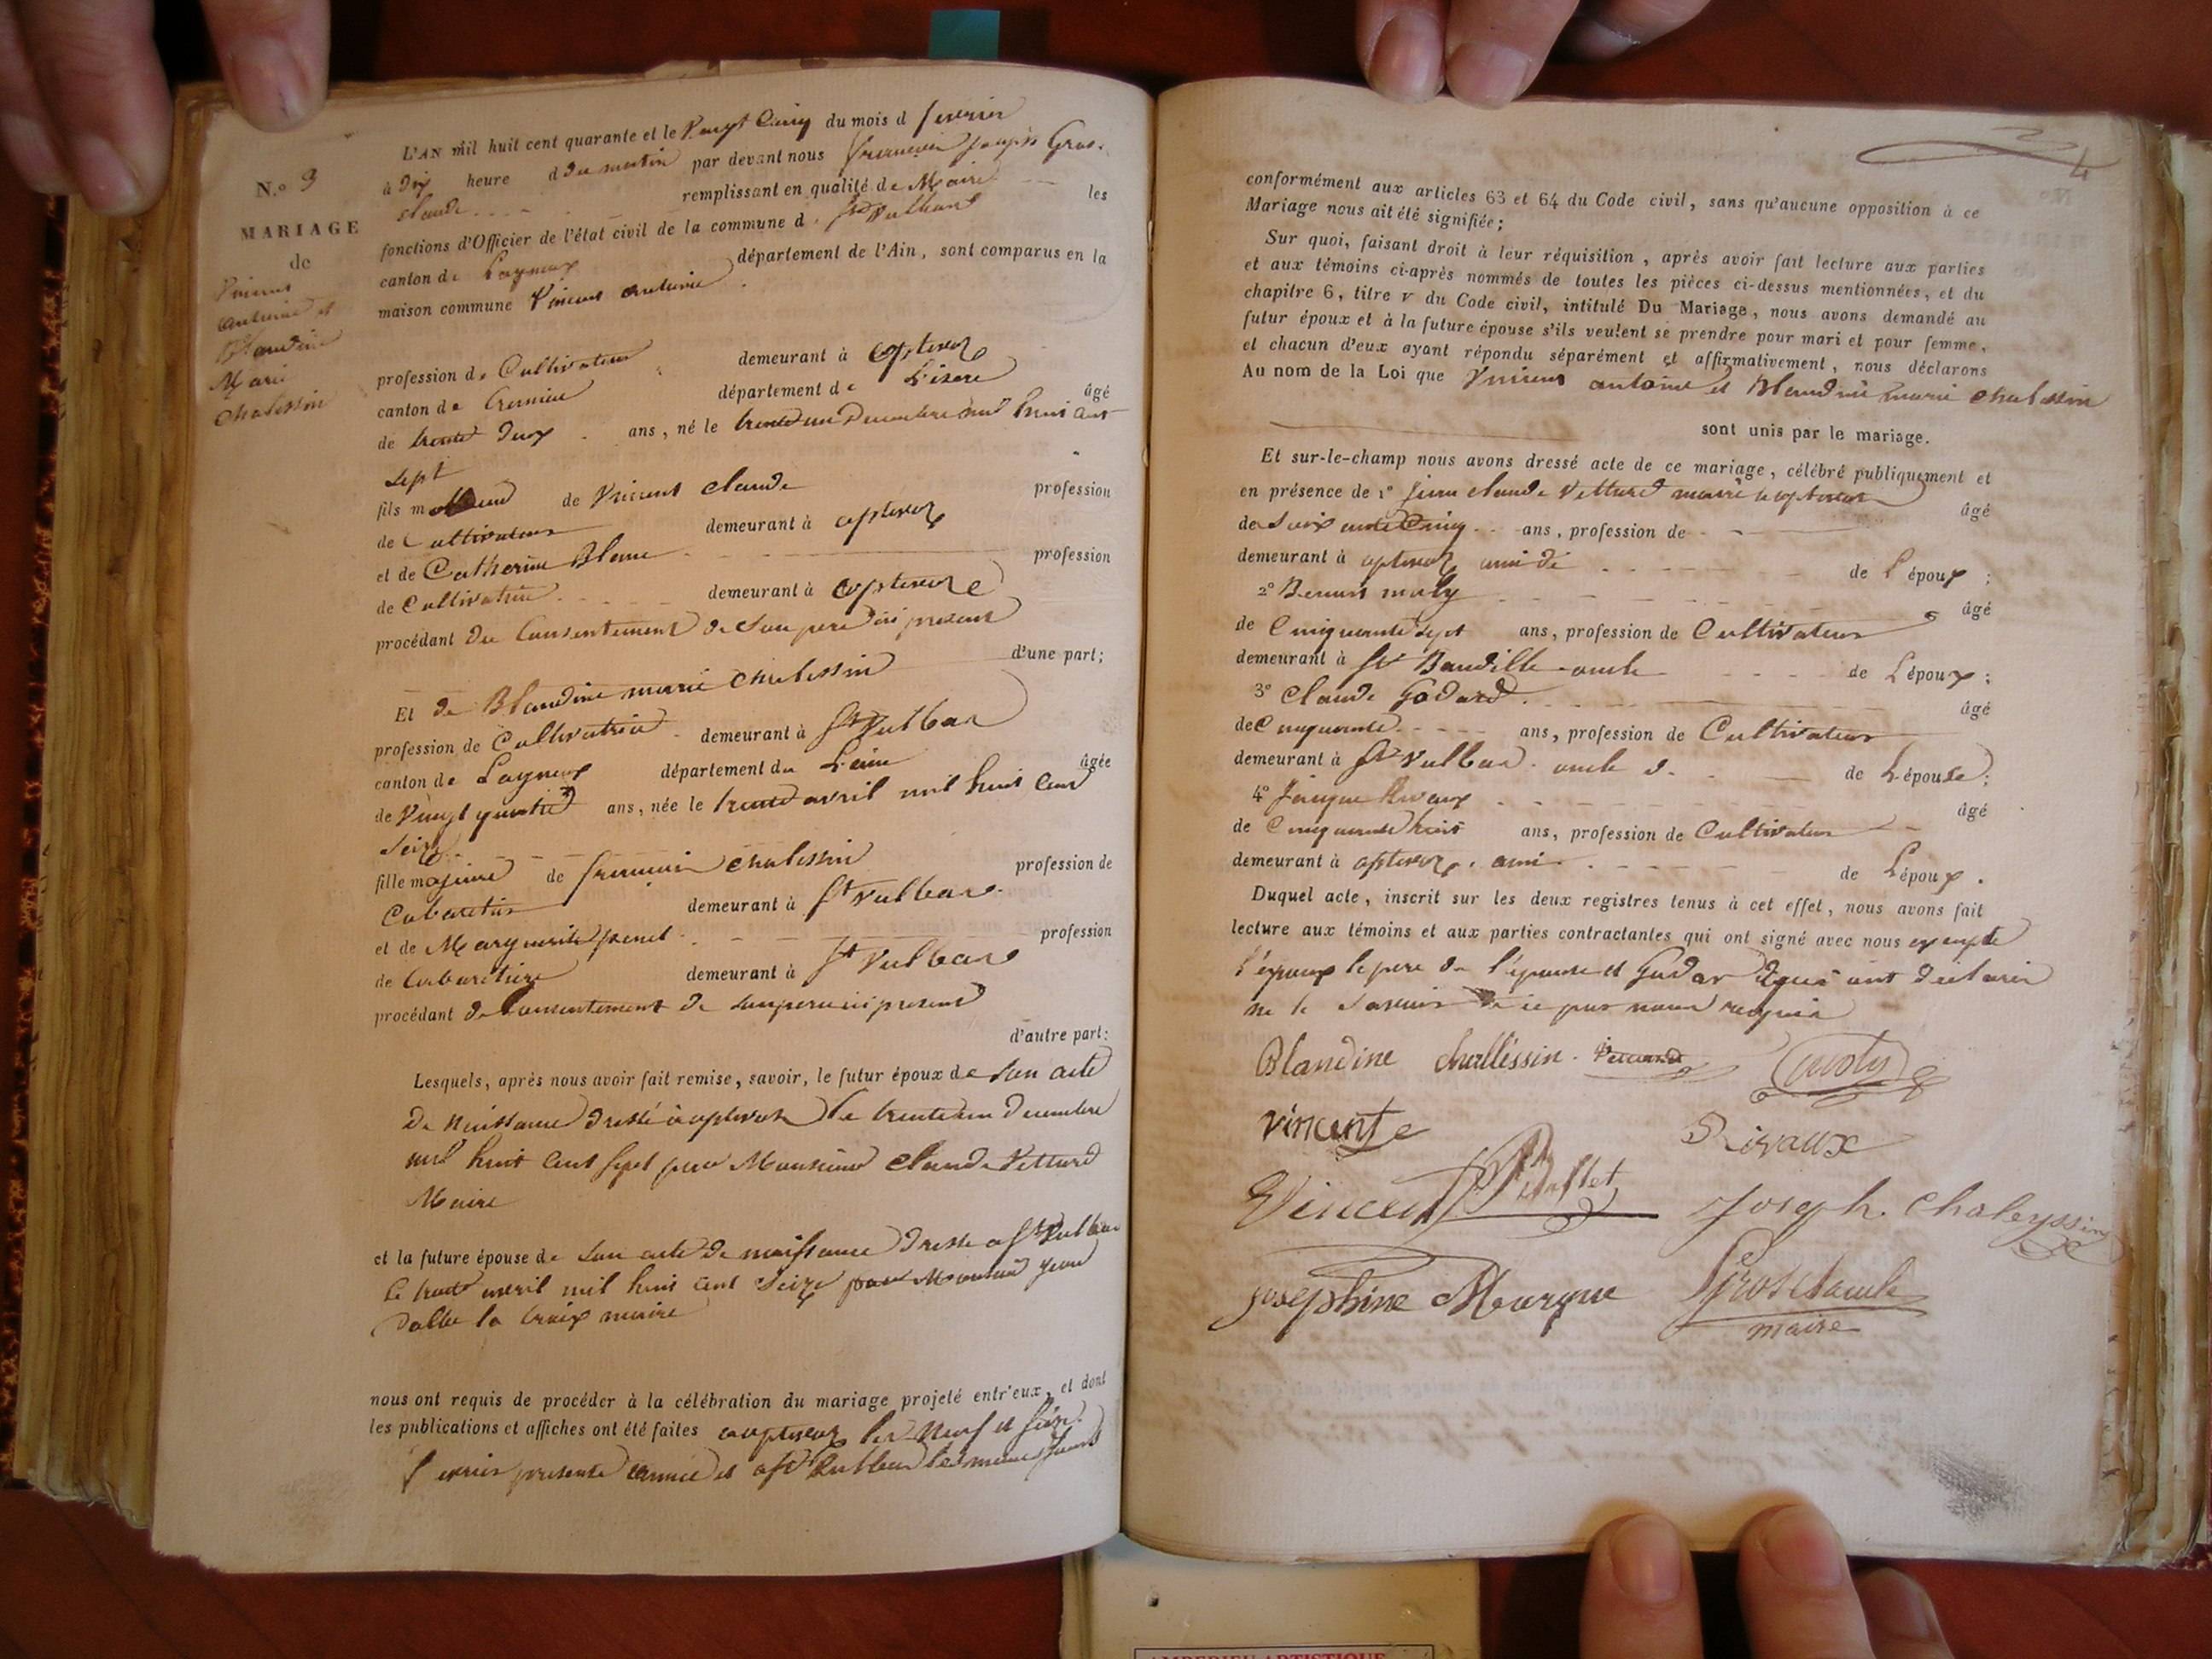 N.º 3
MARIAGE
de
Vincent
antoine et
Blandine
Marie
Chalessin
L'AN mil huit cent quarante et le Vingt Cinq du mois d fevrier
à Dix heure d du matin par devant nous francois joseph Gros.
claude remplissant en qualité de Maire les
fonctions d'Officier de l'état civil de la commune d. St Vulbas
canton de Lagneux département de l'Ain, sont comparus en la
maison commune Vincent antoine
profession de Cultivateur demeurant à optevoz
canton de Cremieu département de L'isere âgé
de trente Deux ans, né le trente un Decembre mil huit cent
sept
fils majeur de Vincent Claude profession
de Cultivateur demeurant à optevoz
et de Catherine Blanc profession
de Cultivatrice demeurant à optevoz
procédant du Consentement de son pere ici present
d'une part;
Et de Blandine marie Chalessin
profession de Cultivatrice demeurant à St Vulbas
canton de Lagneux département de L'ain âgée
de Vingt quatre ans, née le trente avril mil huit cent
Seize
fille majeure de francois chalessin profession de
Cabaretier demeurant à St Vulbas
et de Marguerite profession
de Cabaretiere demeurant à St Vulbas
procédant du Consentement de son pere ici present
d'autre part:
Lesquels, après nous avoir fait remise, savoir, le futur époux de son acte
de naissance dressé à optevoz le trente un decembre
mil huit cent sept par Monsieur Claude Vettard
Maire
et la future épouse de son acte de naissance dressé a St Vulbas
le trente avril mil huit cent Seize par Monsieur jean
la Croix maire
nous ont requis de procéder à la célébration du mariage projeté entr'eux, et dont
les publications et affiches ont été faites a optevoz les Neuf et Seize
fevrier presente année et a St Vulbas les memes jours
4
conformément aux articles 63 et 64 du Code civil, sans qu'aucune opposition à ce
Mariage nous ait été signifiée;
Sur quoi, faisant droit à leur réquisition, après avoir fait lecture aux parties
et aux témoins ci-après nommés de toutes les pièces ci-dessus mentionnées, et du
chapitre 6, titre v du Code civil, intitulé Du Mariage, nous avons demandé au
futur époux et à la future épouse s'ils veulent se prendre pour mari et pour femme,
et chacun d'eux ayant répondu séparément et affirmativement, nous déclarons
Au nom de la Loi que Vincent antoine et Blandine marie Chalessin
sont unis par le mariage.
Et sur-le-champ nous avons dressé acte de ce mariage, célébré publiquement et
en présence de 1º Jean claude Vettard maire a optevoz âgé
de Soixante Cinq ans, profession de
demeurant à optevoz ami de de L'époux;
2º Benoit moly âgé
de Cinquante Sept ans, profession de Cultivateur
demeurant à St Baudille oncle de L'époux;
3º Claude Godard âgé
de Cinquante ans, profession de Cultivateur
demeurant à St Vulbas. oncle d. de L'épouse;
4º Jacque Rivaux âgé
de Cinquante huit ans, profession de Cultivateur
demeurant à optevoz. ami de L'époux.
Duquel acte, inscrit sur les deux registres tenus à cet effet, nous avons fait
lecture aux témoins et aux parties contractantes qui ont signé avec nous excepte
l'epoux le pere de l'epouse et Godar qui ont declarés
ne le Savoir de ce par nous requis
Blandine challéssin. moly
vincent Rivaux
Vincent Joseph. Chaleyssin
josephine Mourgue Grosclaude
maire
AMBERIEU ARTISTIQUE